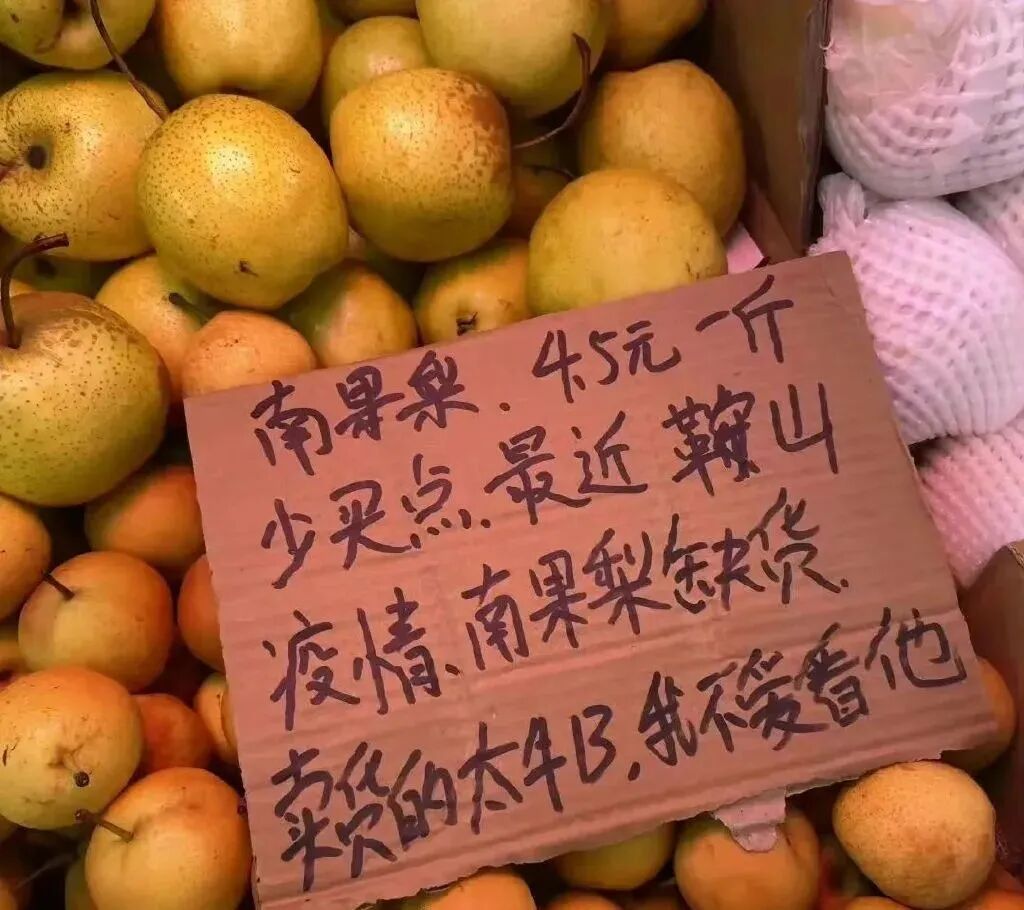 南果梨. 4.5元一斤
少买点.最近鞍山
疫情、南果梨缺货.
卖货的太牛B.我不爱看他